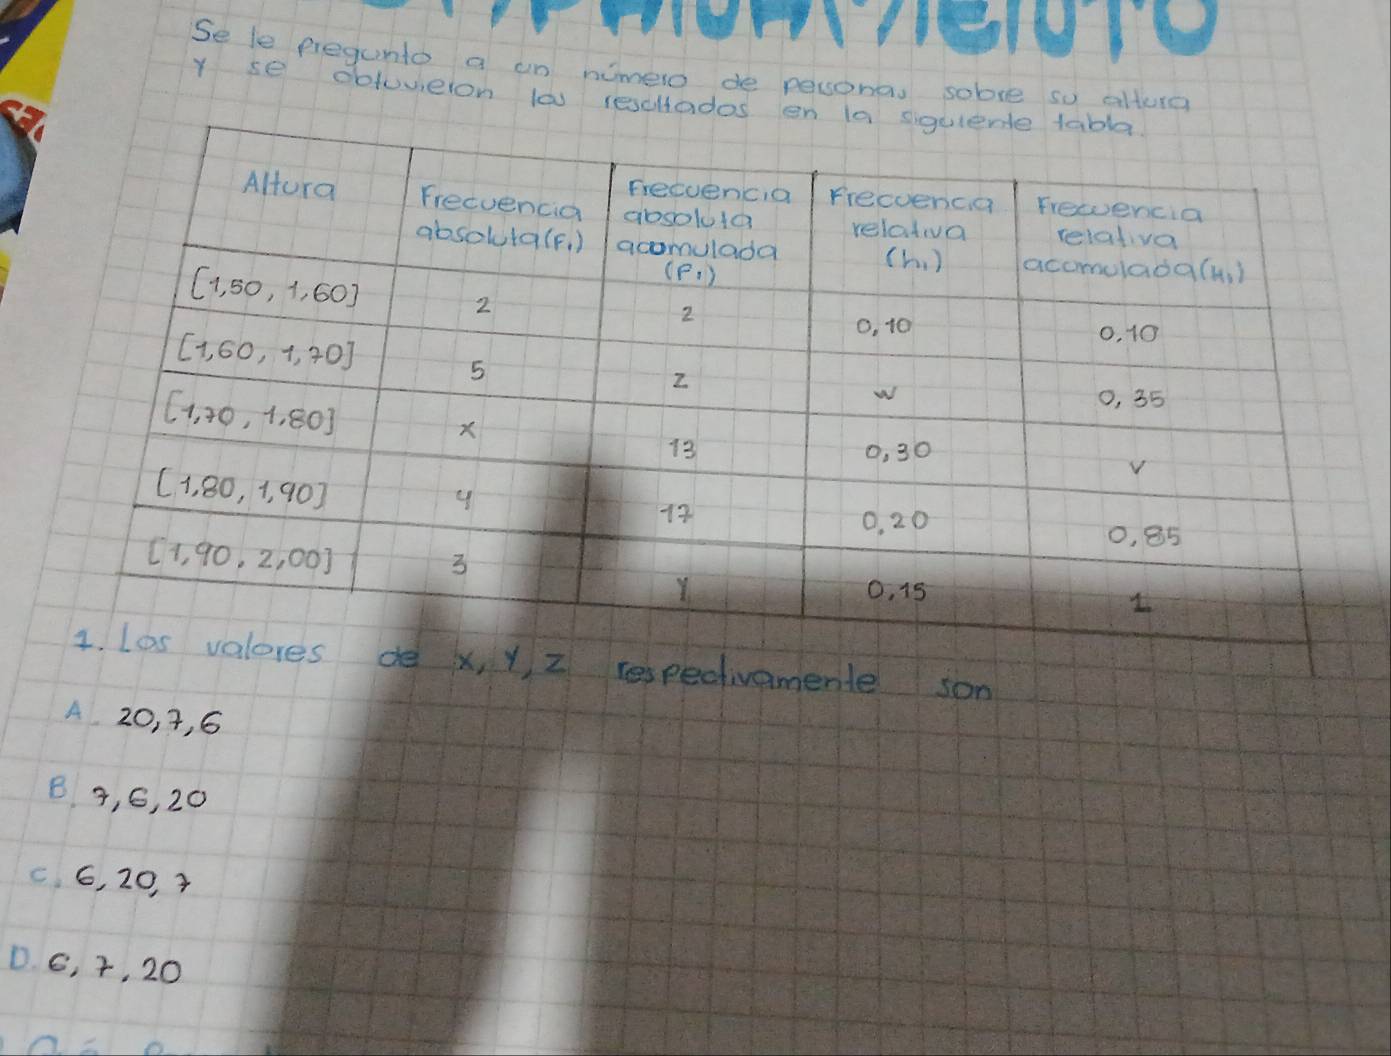 Se le pregunto a un número de personas sobre su altura
Y se obtuvieron los resultados en la siguiente tabla.
Altura
Frecuencia
absoluta (F₁)
Frecuencia
absoluta
acomulada
(F₁)
Frecuencia
relativa
(h₁)
Frecuencia
relativa
acomulada (H₁)
[1,50, 1,60] 2 2 0,10 0,10
[1,60, 1,70] 5 z w 0,35
[1,70, 1,80] x 13 0,30 v
[1,80, 1,90] 4 17 0,20 0,85
[1,90, 2,00] 3 Y 0,15 1
1. Los valores de x, Y, z respectivamente son
A. 20, 7, 6
B. 7, 6, 20
C. 6, 20, 7
D. 6, 7, 20